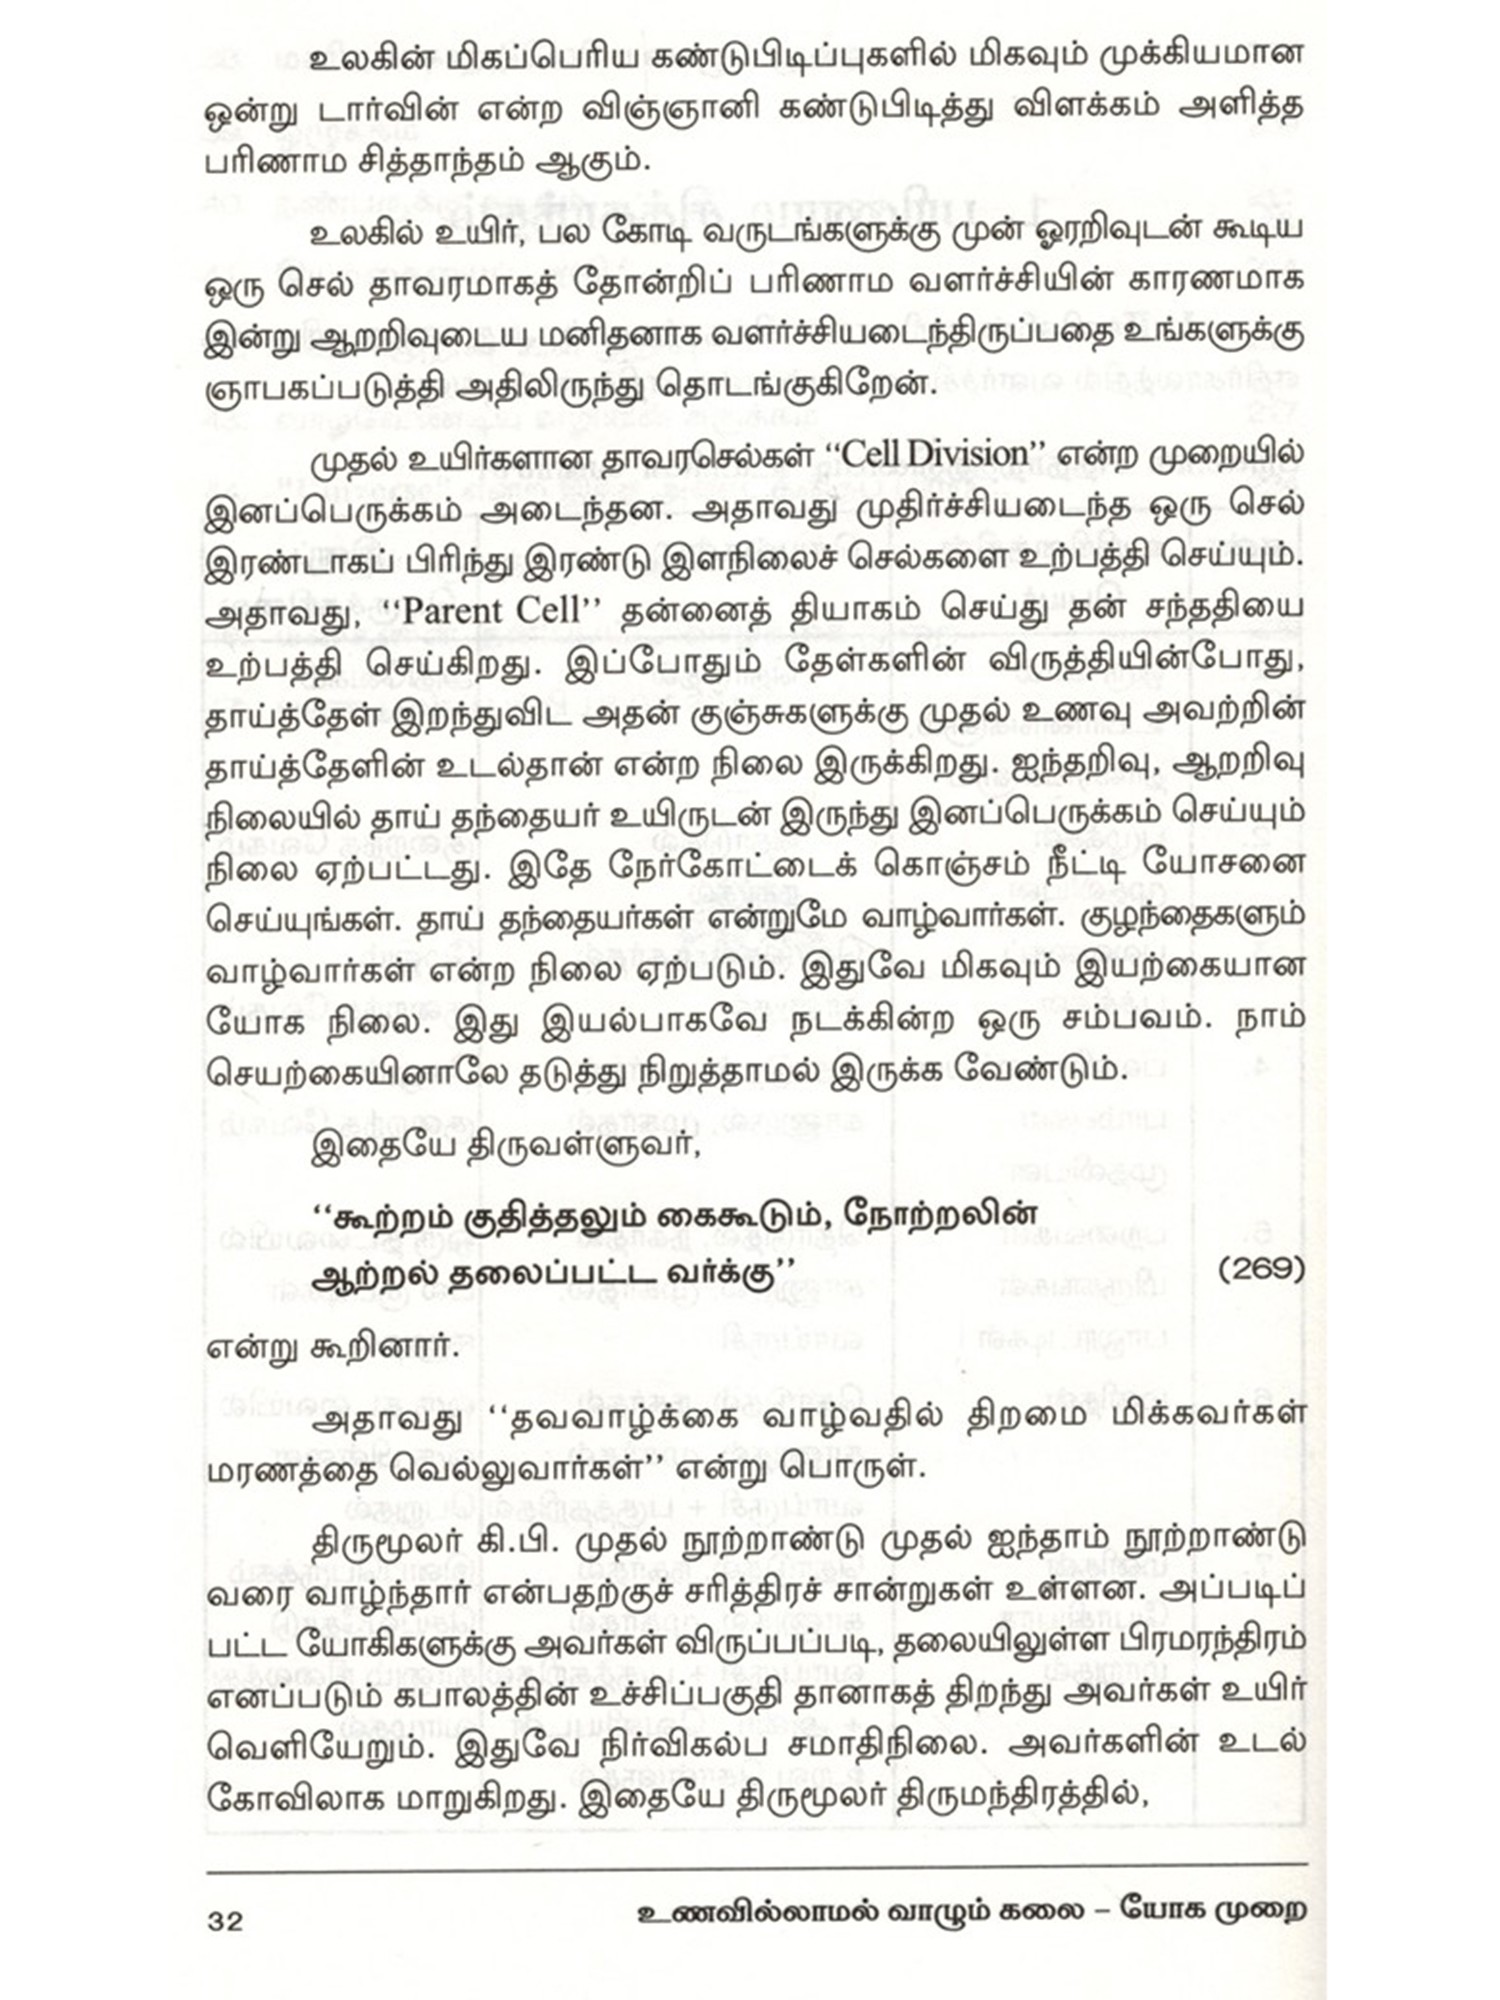 உலகின் மிகப்பெரிய கண்டுபிடிப்புகளில் மிகவும் முக்கியமான
ஒன்று டார்வின் என்ற விஞ்ஞானி கண்டுபிடித்து விளக்கம் அளித்த
பரிணாம சித்தாந்தம் ஆகும்.
உலகில் உயிர், பல கோடி வருடங்களுக்கு முன் ஓரறிவுடன் கூடிய
ஒரு செல் தாவரமாகத் தோன்றிப் பரிணாம வளர்ச்சியின் காரணமாக
இன்று ஆறறிவுடைய மனிதனாக வளர்ச்சியடைந்திருப்பதை உங்களுக்கு
ஞாபகப்படுத்தி அதிலிருந்து தொடங்குகிறேன்.
முதல் உயிர்களான தாவரசெல்கள் “Cell Division” என்ற முறையில்
இனப்பெருக்கம் அடைந்தன. அதாவது முதிர்ச்சியடைந்த ஒரு செல்
இரண்டாகப் பிரிந்து இரண்டு இளநிலைச் செல்களை உற்பத்தி செய்யும்.
அதாவது, “Parent Cell” தன்னைத் தியாகம் செய்து தன் சந்ததியை
உற்பத்தி செய்கிறது. இப்போதும் தேள்களின் விருத்தியின்போது,
தாய்த்தேள் இறந்துவிட அதன் குஞ்சுகளுக்கு முதல் உணவு அவற்றின்
தாய்த்தேளின் உடல்தான் என்ற நிலை இருக்கிறது. ஐந்தறிவு, ஆறறிவு
நிலையில் தாய் தந்தையர் உயிருடன் இருந்து இனப்பெருக்கம் செய்யும்
நிலை ஏற்பட்டது. இதே நேர்கோட்டைக் கொஞ்சம் நீட்டி யோசனை
செய்யுங்கள். தாய் தந்தையர்கள் என்றுமே வாழ்வார்கள். குழந்தைகளும்
வாழ்வார்கள் என்ற நிலை ஏற்படும். இதுவே மிகவும் இயற்கையான
யோக நிலை. இது இயல்பாகவே நடக்கின்ற ஒரு சம்பவம். நாம்
செயற்கையினாலே தடுத்து நிறுத்தாமல் இருக்க வேண்டும்.
இதையே திருவள்ளுவர்,
“கூற்றம் குதித்தலும் கைகூடும், நோற்றலின்
ஆற்றல் தலைப்பட்ட வர்க்கு” (269)
என்று கூறினார்.
அதாவது “தவவாழ்க்கை வாழ்வதில் திறமை மிக்கவர்கள்
மரணத்தை வெல்லுவார்கள்” என்று பொருள்.
திருமூலர் கி.பி. முதல் நூற்றாண்டு முதல் ஐந்தாம் நூற்றாண்டு
வரை வாழ்ந்தார் என்பதற்குச் சரித்திரச் சான்றுகள் உள்ளன. அப்படிப்
பட்ட யோகிகளுக்கு அவர்கள் விருப்பப்படி, தலையிலுள்ள பிரமரந்திரம்
எனப்படும் கபாலத்தின் உச்சிப்பகுதி தானாகத் திறந்து அவர்கள் உயிர்
வெளியேறும். இதுவே நிர்விகல்ப சமாதிநிலை. அவர்களின் உடல்
கோவிலாக மாறுகிறது. இதையே திருமூலர் திருமந்திரத்தில்,
32 உணவில்லாமல் வாழும் கலை – யோக முறை